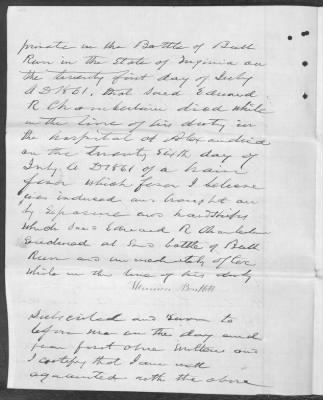 private in the Battle of Bull
Run in the State of Virginia on
the twenty first day of July
A D 1861. That said Edward
R Chamberlain died while
in the line of his duty in
the hospital at Alexandria
on the twenty sixth day of
July A D 1861 of a
fever which fever I believe
was induced and brought on
by Exposure and hardships
which said Edward R Chamberlain
Endured at said battle of Bull
Run and immediately
while in the line of his duty

Subscribed and Sworn to
before me on the day and
year first above written and
I certify that I am well
acquainted with the above